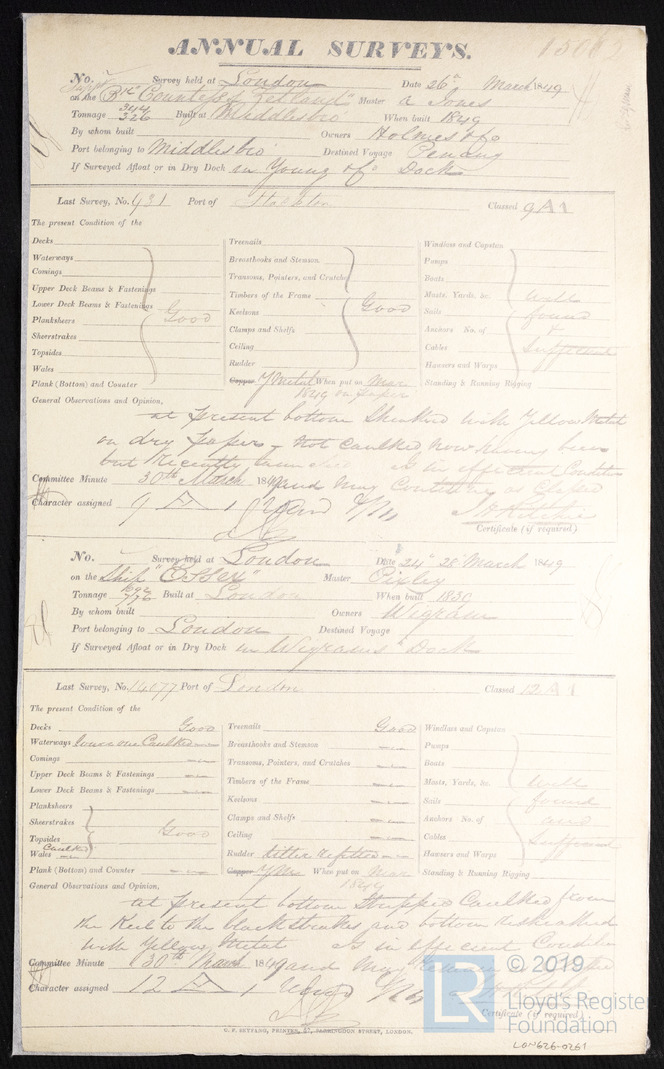 ANNUAL SURVEYS.
No. Survey held at London Date 26th March 1849
on the Bk "Countess of Zetland" Master A Jones
Tonnage 344 326 Built at Middlesbro When built 1849
By whom built Owners Holmes & Co
Port belonging to Middlesbro Destined Voyage Penang
If Surveyed Afloat or in Dry Dock in Young & Co Dock
Last Survey, No. 931 Port of Stockton Classed 9A1
The present Condition of the
Decks Treenails Windlass and Capstan
Waterways Breasthooks and Stemson Pumps
Comings Transoms, Pointers, and Crutches Boats
Upper Deck Beams & Fastenings Timbers of the Frame Masts, Yards, &c. Well
Lower Deck Beams & Fastenings Keelsons Good Sails found
Planksheers Good Clamps and Shelfs Anchors No. of &
Sheerstrakes Ceiling Cables Sufficient
Topsides Rudder Hawsers and Warps
Wales Copper Y Metal When put on Mar Standing & Running Rigging
Plank (Bottom) and Counter 1849 on paper
General Observations and Opinion,
at present bottom Sheathed with Yellow Metal
on dry paper - Not Caulked, now having been
but recently launched is in efficient Condition
Committee Minute 30th March 1849 and may Continue as Classed
Character assigned 9 A 1
Certificate (if required)
No. Survey held at London Date 24th 28 March 1849
on the Ship "Essex" Master Pixley
Tonnage 776 Built at London When built 1830
By whom built Owners Wigram
Port belonging to London Destined Voyage
If Surveyed Afloat or in Dry Dock in Wigrams Dock
Last Survey, No. 14077 Port of London Classed 12A1
The present Condition of the
Decks Good Treenails Good Windlass and Capstan
Waterways Caulked Breasthooks and Stemson Pumps
Comings Transoms, Pointers, and Crutches Boats
Upper Deck Beams & Fastenings Timbers of the Frame Masts, Yards, &c. Well
Lower Deck Beams & Fastenings Keelsons Sails found
Planksheers Clamps and Shelfs Anchors No. of and
Sheerstrakes Ceiling Cables Sufficient
Topsides Good Rudder Hawsers and Warps
Wales Caulked Copper YM When put on Mar Standing & Running Rigging
Plank (Bottom) and Counter 1849
General Observations and Opinion,
at present bottom Stripped Caulked from
the Keel to the blackstrakes and bottom resheathed
with Yellow Metal Is in efficient Condition
Committee Minute 30th March 1849 and may
Character assigned 12 A 1
Certificate (if required)
LR © 2019
Lloyd's Register
Foundation
C. F. SEYFANG, PRINTER, 57, FARRINGDON STREET, LONDON.
LON626-0261